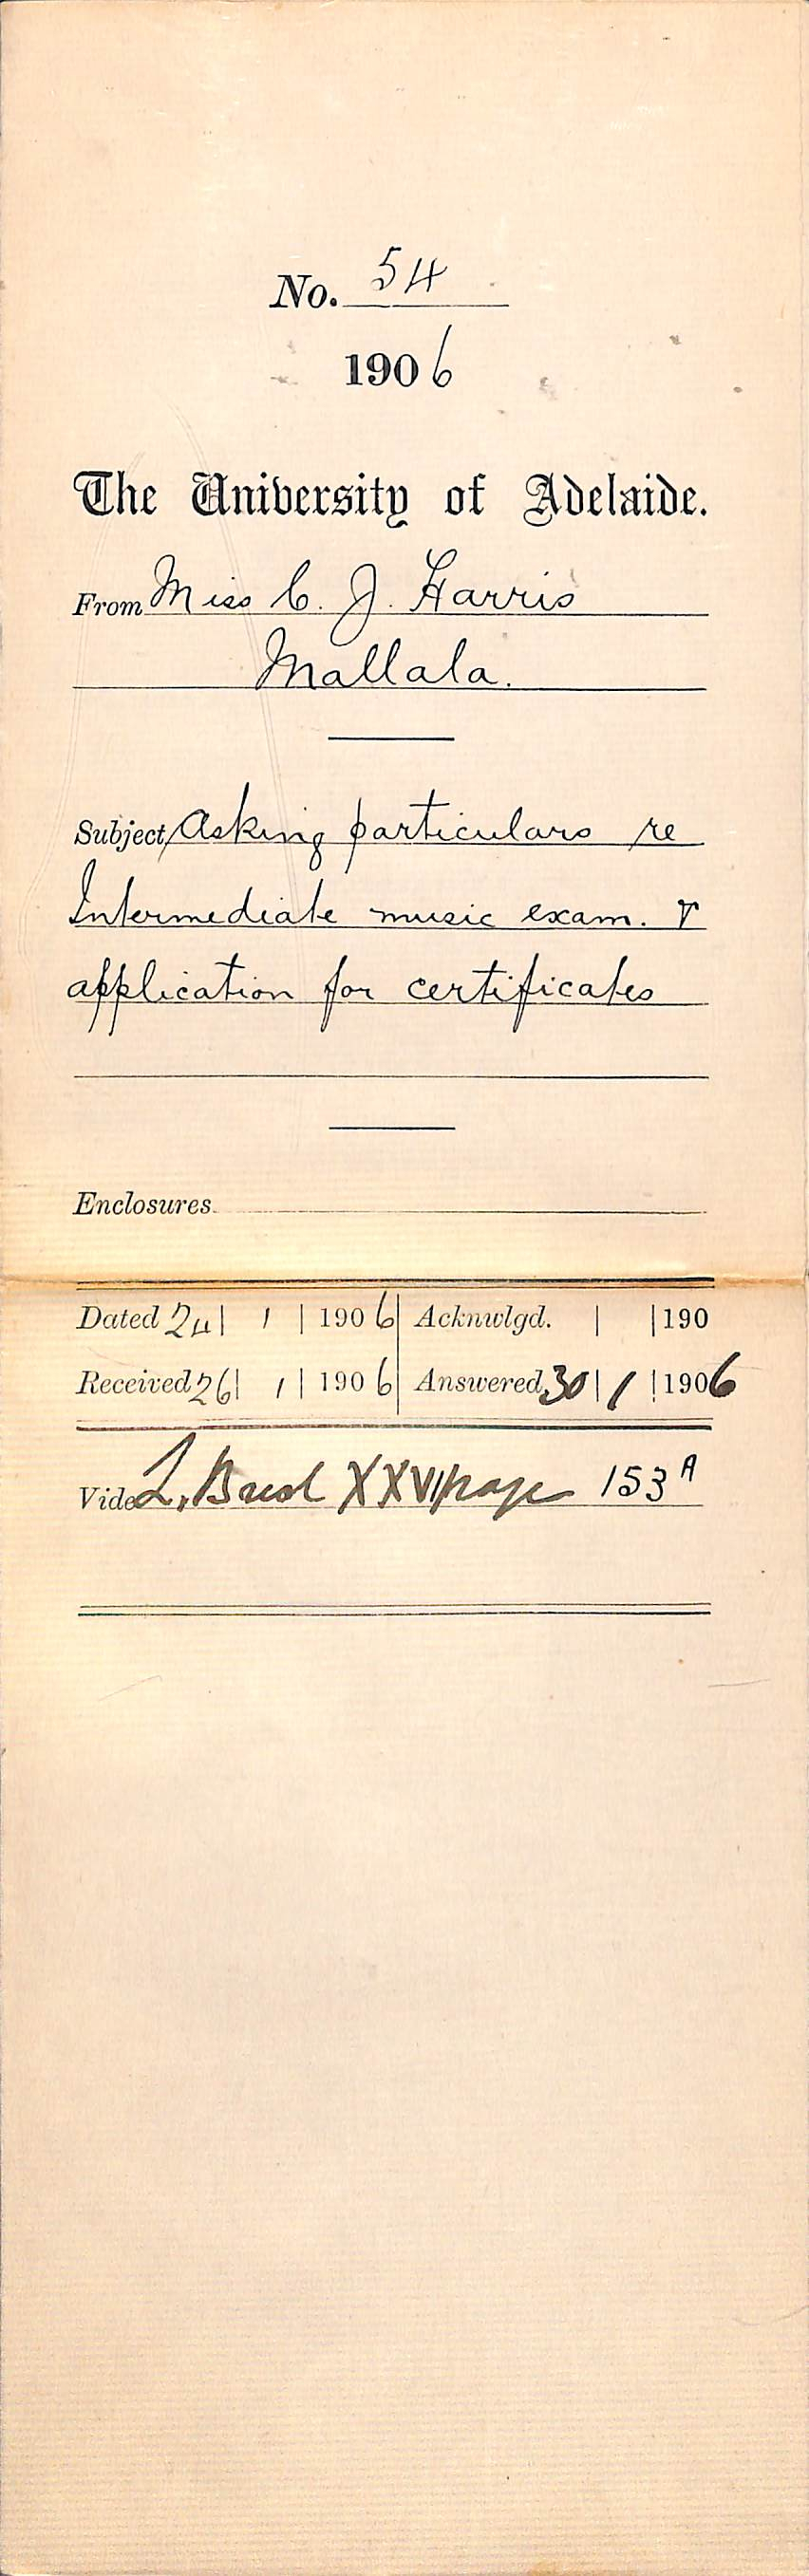 No. 54
1906
The University of Adelaide.
From Miss C. J. Harris
Mallala.
Subject, Asking particulars re
Intermediate music exam. &
application for certificates
Enclosures
Dated 24 | 1 | 1906 Acknwlgd. | | 190
Received 26 | 1 | 1906 Answered, 30 | 1 | 1906
Vide L. XXVI page 153A